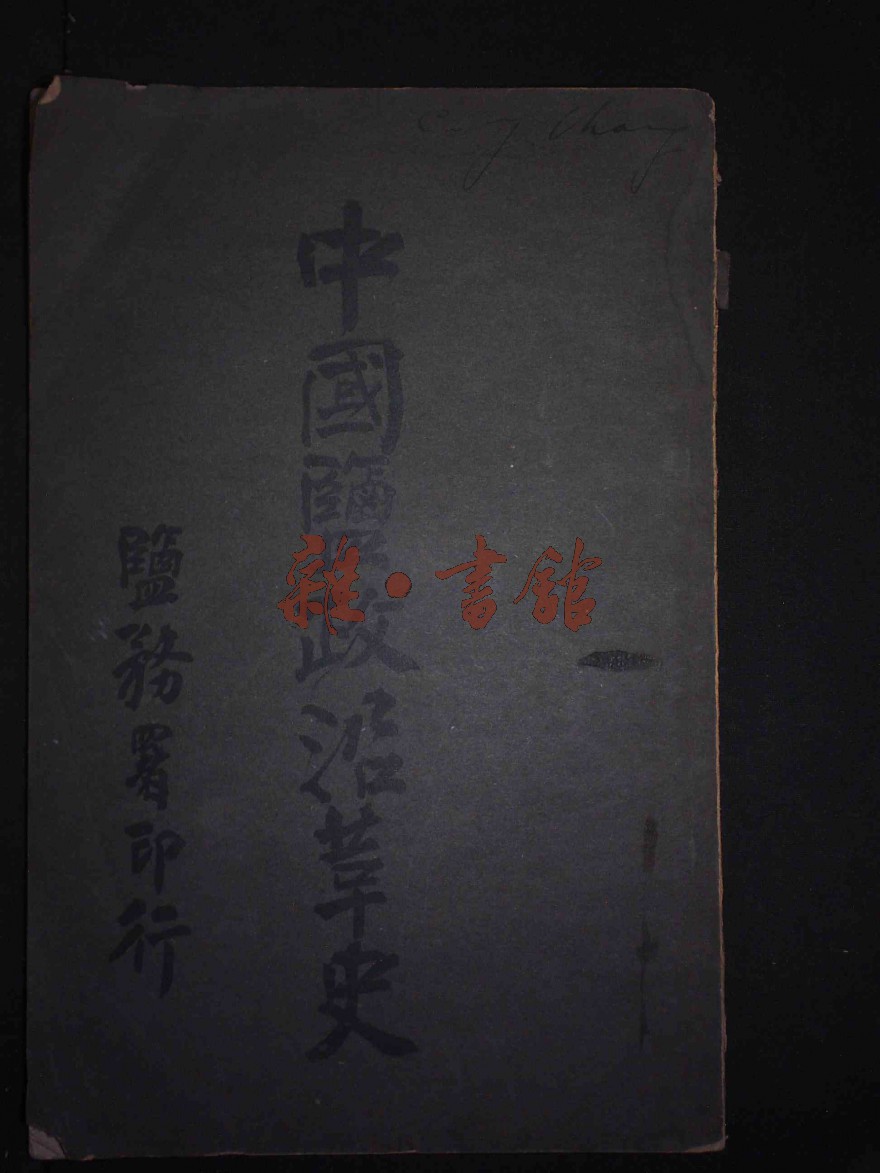 中國鹽政沿革史
鹽務署印行
雜·書館